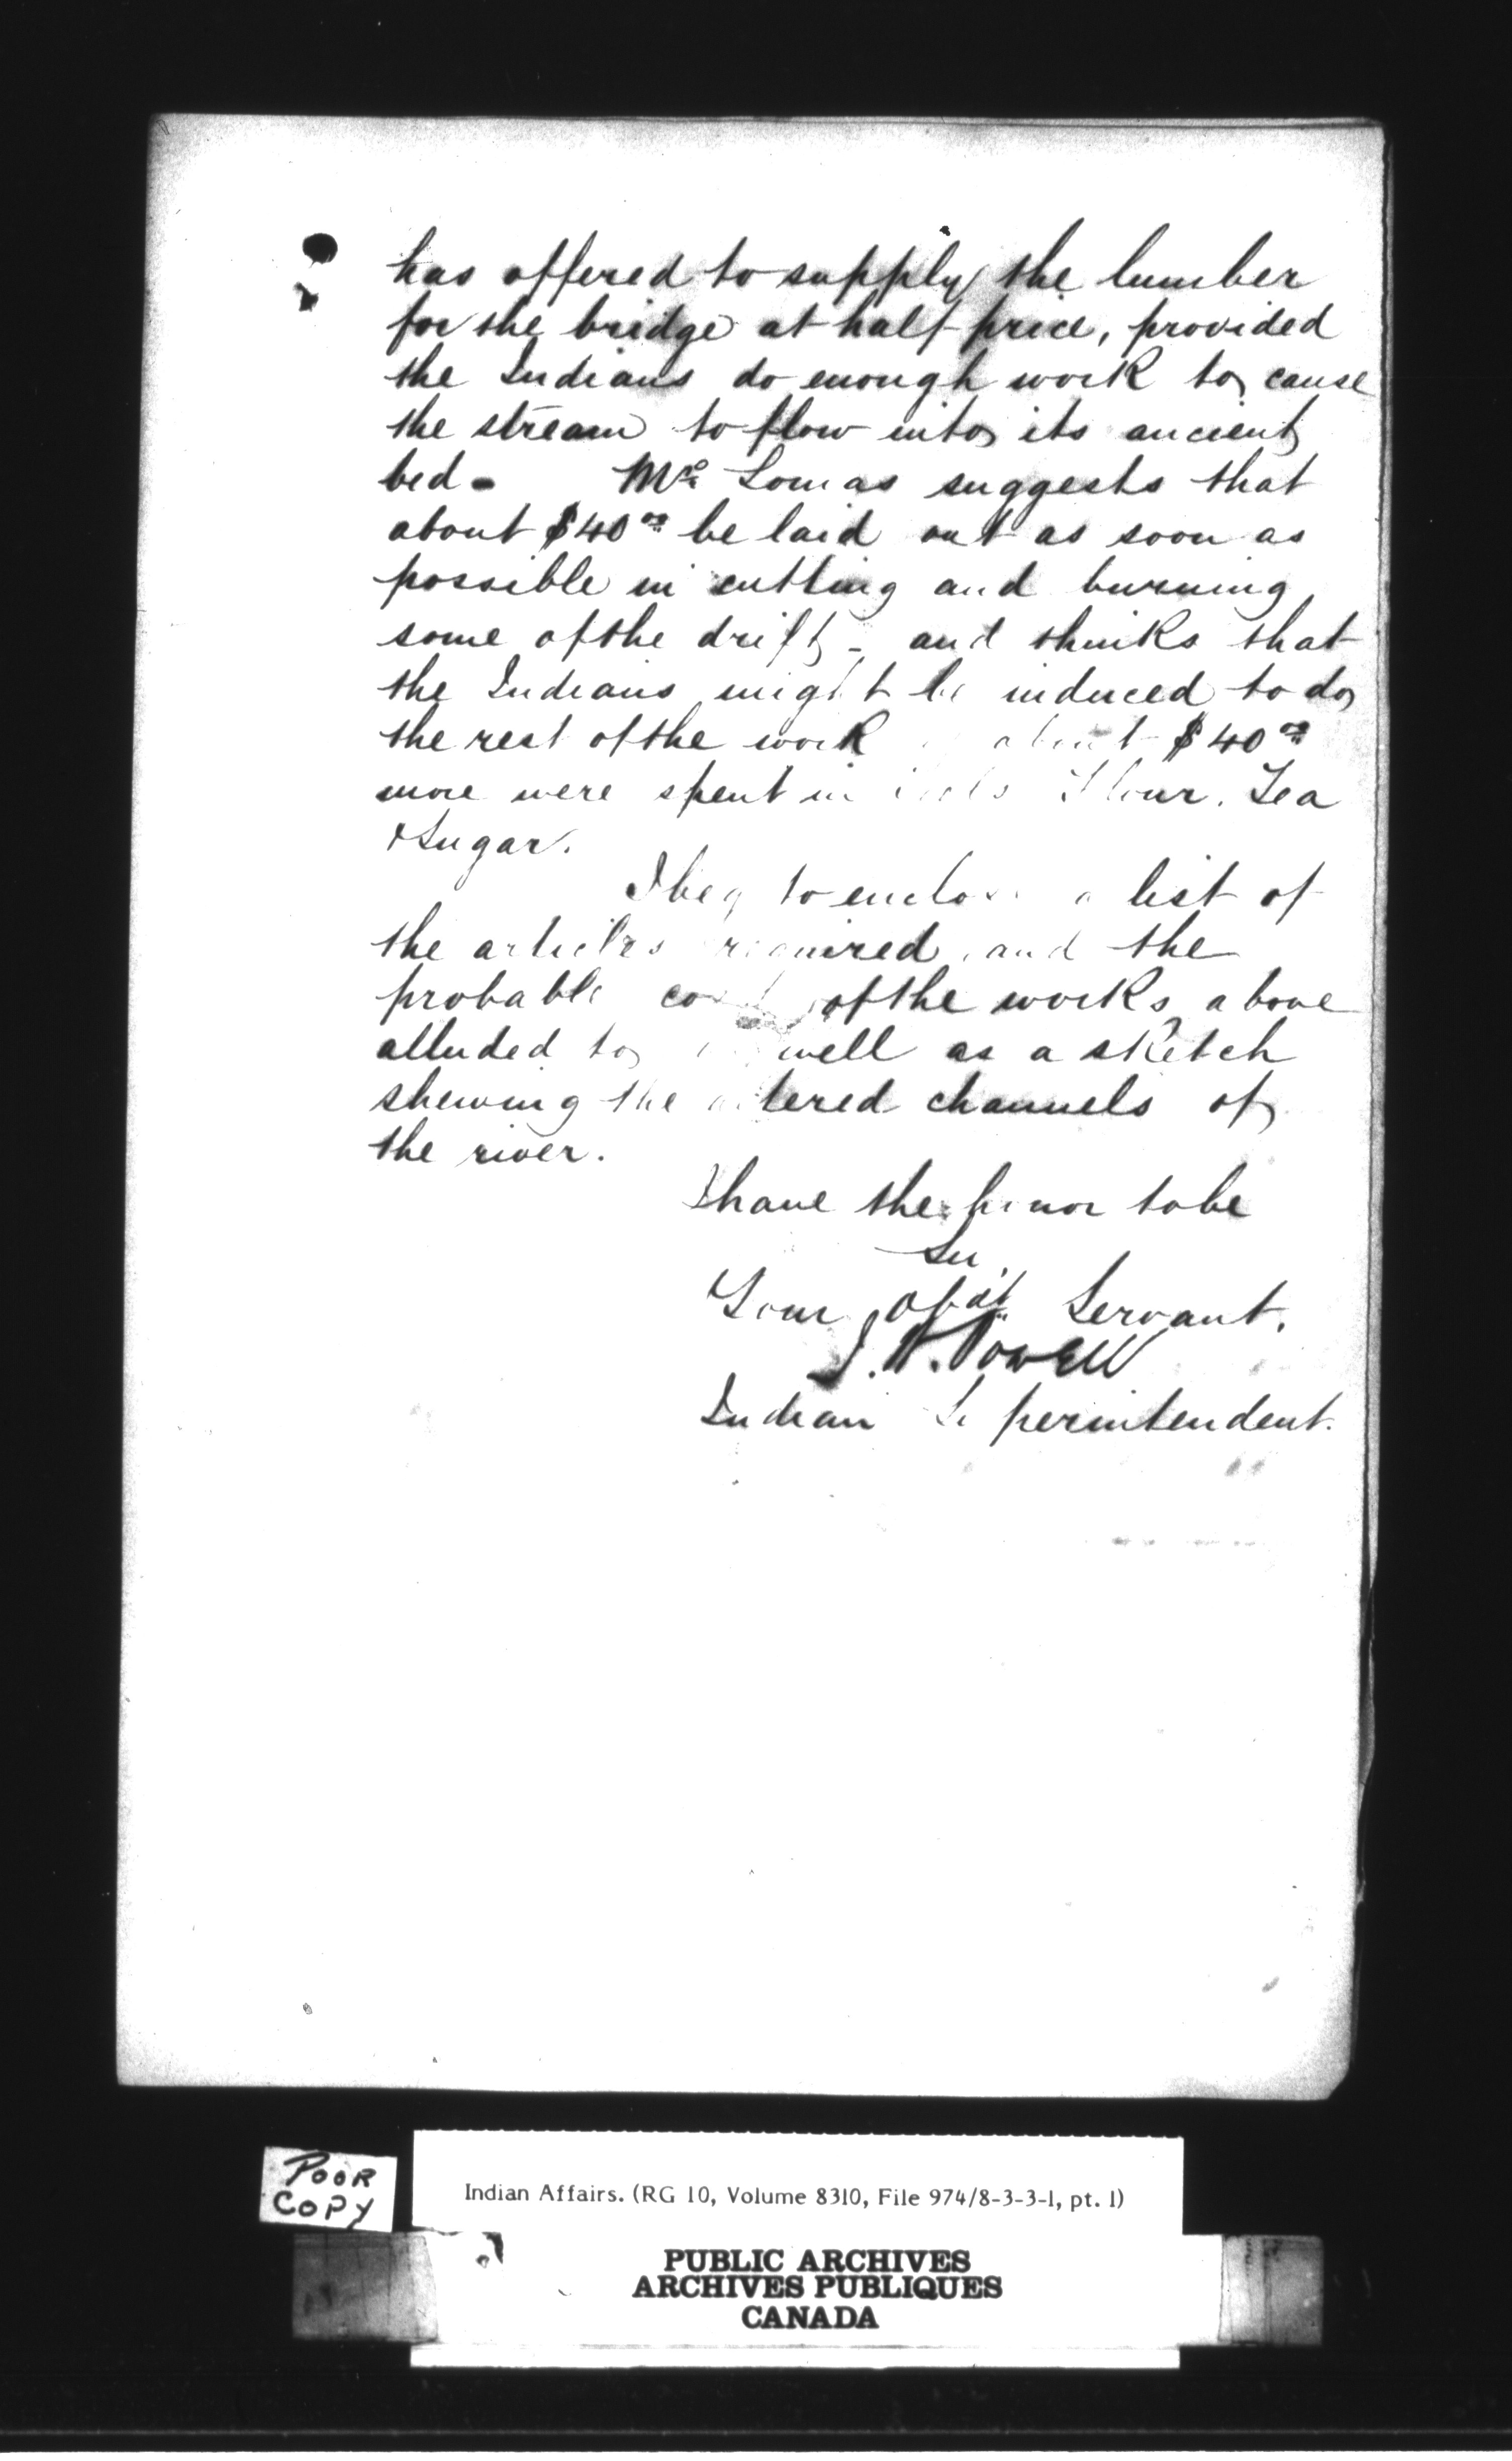 has offered to supply the lumber
for the bridge at half price, provided
the Indians do enough work to cause
the stream to flow into its ancient
bed - Mr. Lomas suggests that
about $40.00 be laid out as soon as
possible in cutting and burning
some of the drift - and thinks that
the Indians might be induced to do
the rest of the work about $40.00
more were spent in Flour, Tea
& Sugar.
I beg to enclose a list of
the articles required and the
probable cost of the works above
alluded to well as a sketch
shewing the altered channels of
the river.
I have the honor to be
Sir,
Your obdt Servant.
I.W. Powell
Indian Superintendent.
POOR
COPY
Indian Affairs. (RG 10, Volume 8310, File 974/8-3-3-1, pt. 1)
PUBLIC ARCHIVES
ARCHIVES PUBLIQUES
CANADA